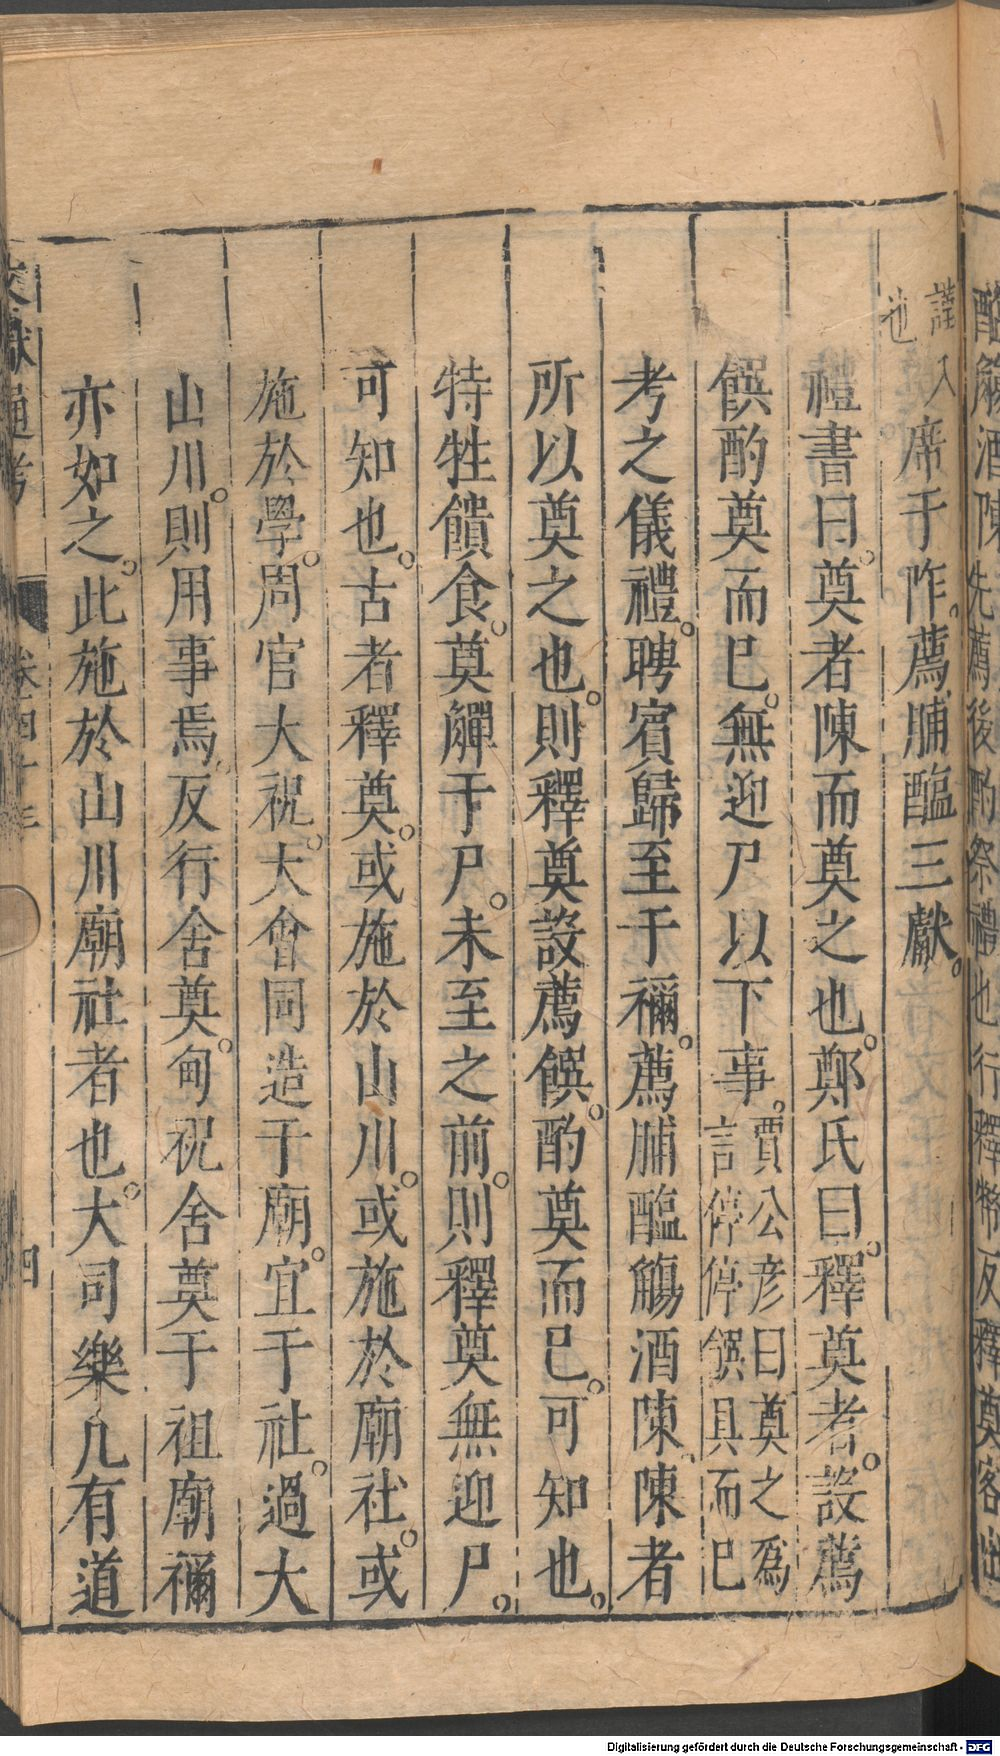 酳觴酒陳先薦後酌祭禮也行釋幣反釋奠客出
謹入
也
席于阼。薦脯醢三獻。
禮書曰。奠者陳而奠之也。鄭氏曰。釋奠者。設薦
饌酌奠而已。無迎尸以下事。賈公彥曰奠之爲
言停停饌具而已
考之儀禮。聘賓歸至于禰。薦脯醢觴酒陳。陳者
所以奠之也。則釋奠設薦饌。酌奠而已。可知也。
特牲饋食。奠觶于尸。未至之前。則釋奠無迎尸。
可知也。古者釋奠。或施於山川。或施於廟社。或
施於學。周官大祝。大會同造于廟。宜于社。過大
山川。則用事焉。反行舍奠。甸祝舍奠于祖廟禰
亦如之。此施於山川廟社者也。大司樂凡有道
文獻通考 卷四十三 四
Digitalisierung gefördert durch die Deutsche Forschungsgemeinschaft - DFG